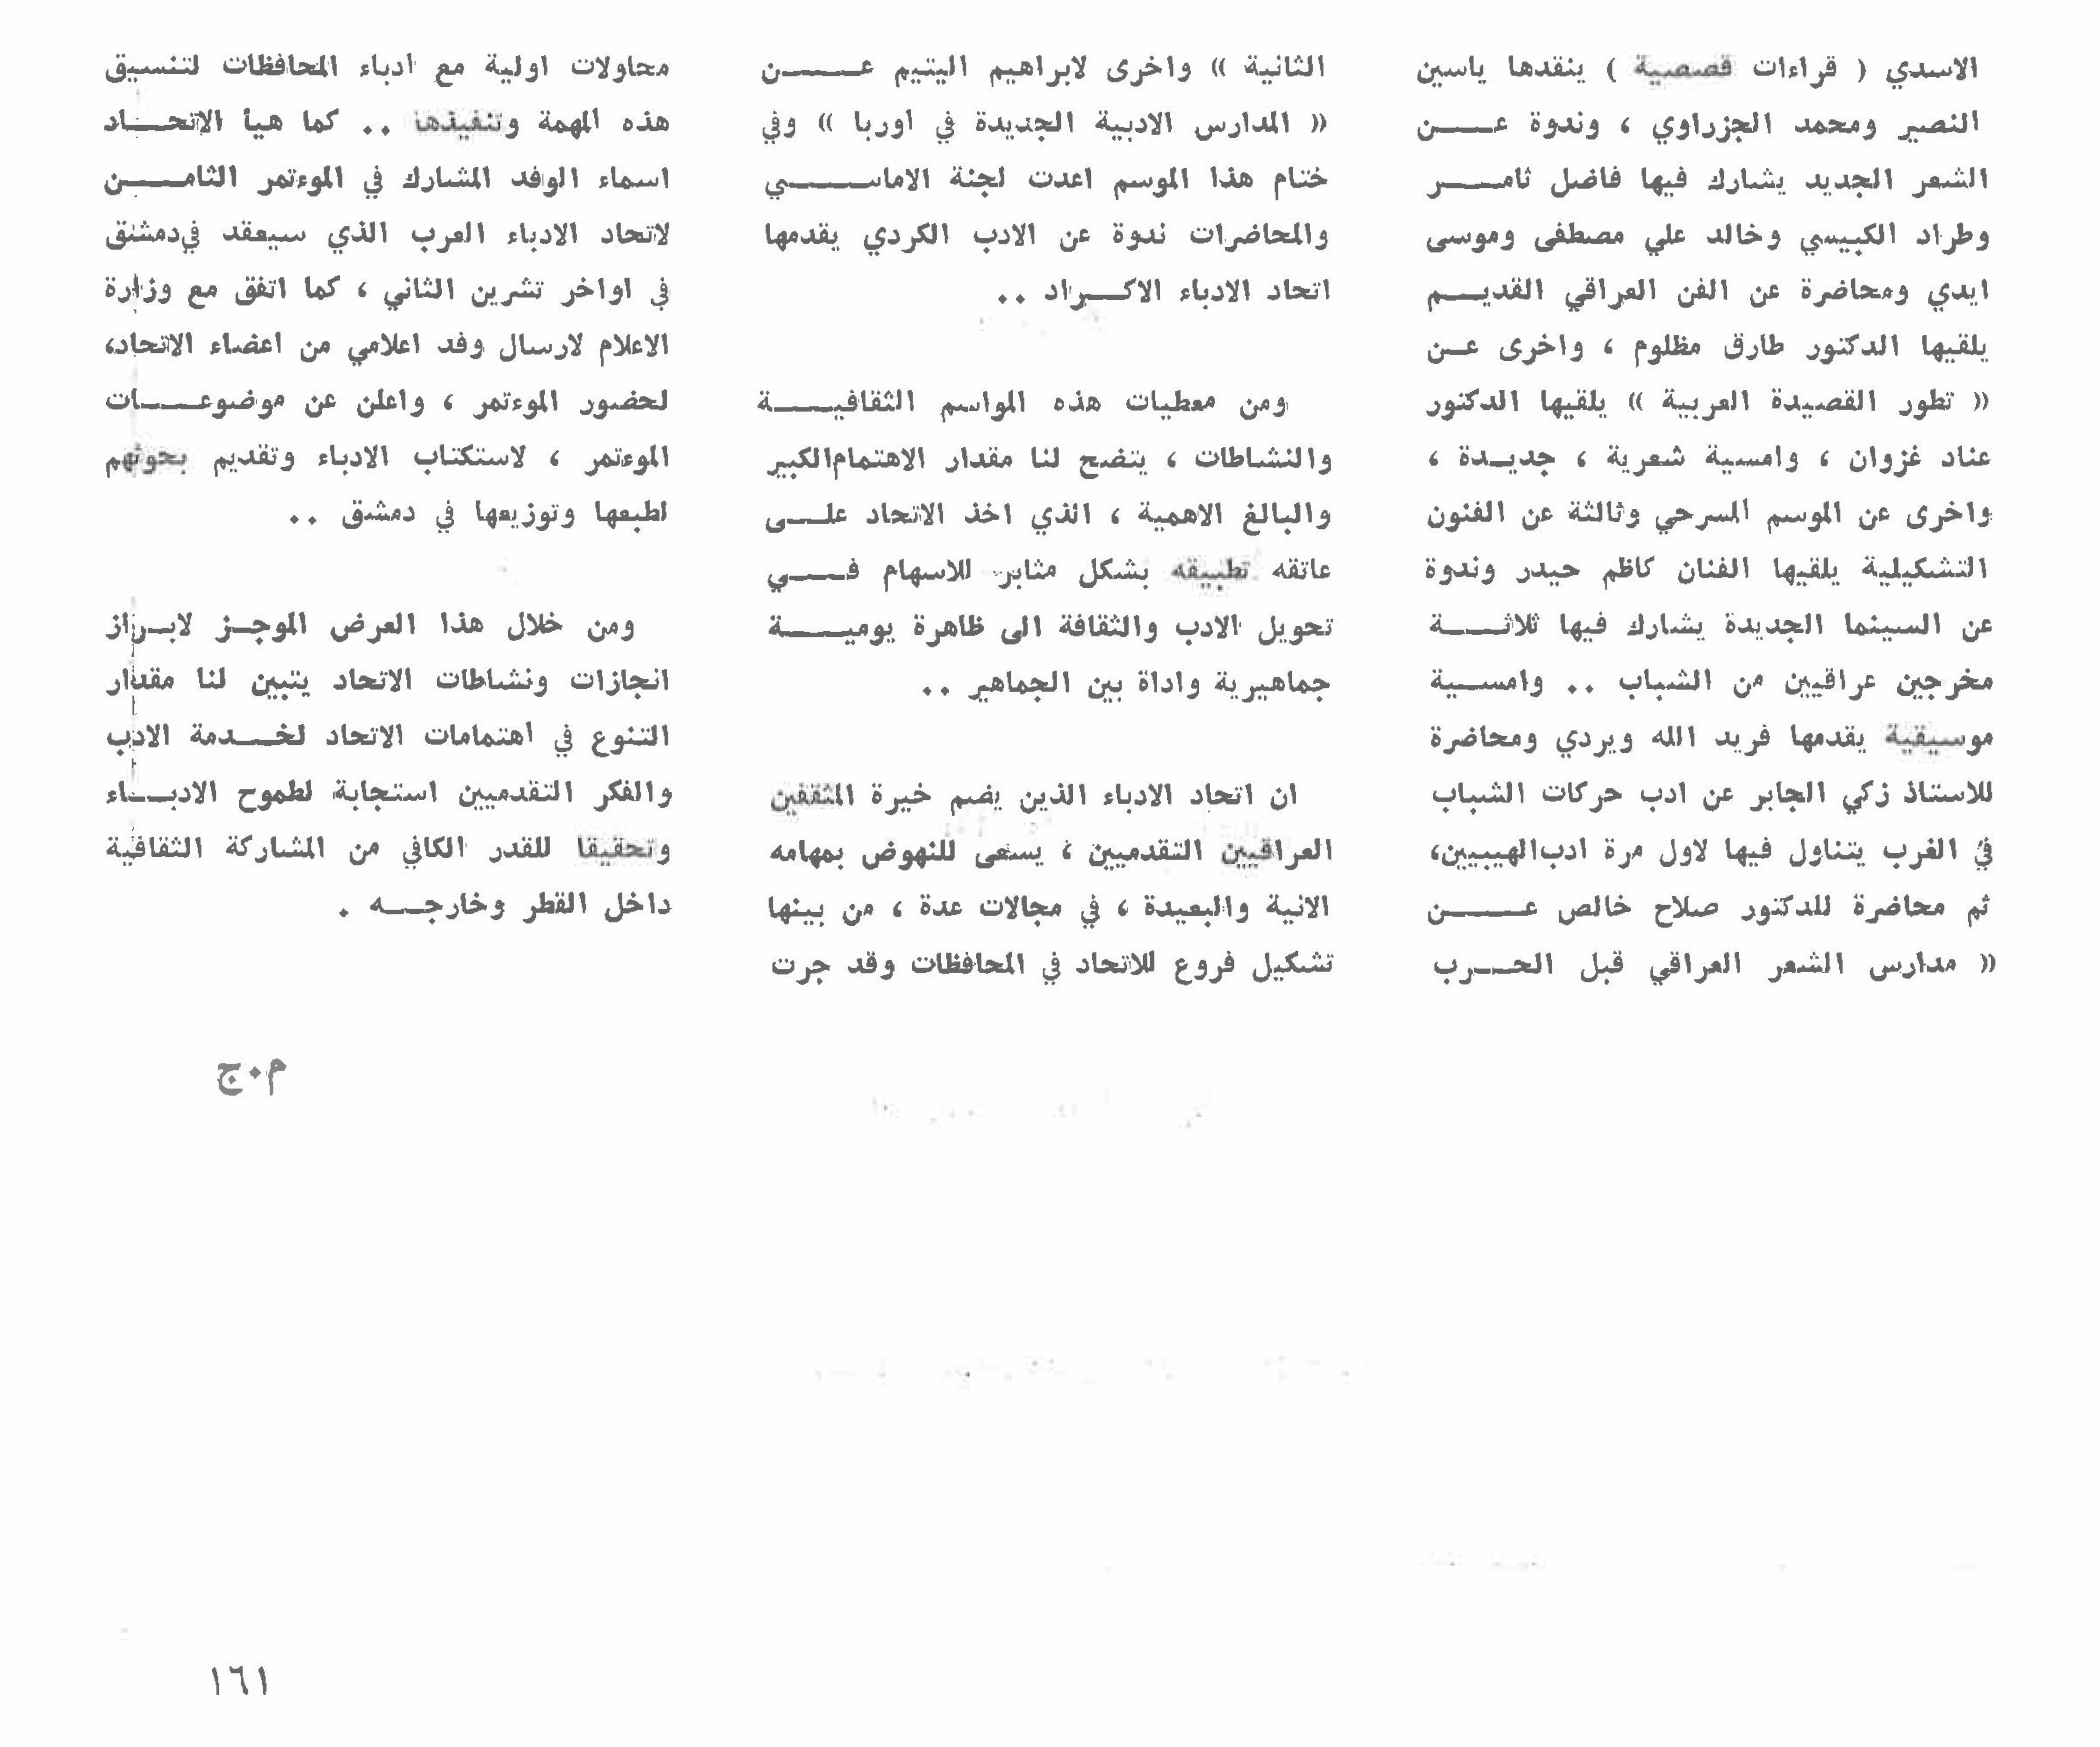 الاسدي ( قراءات قصصية ) ينقدها ياسين
النصير ومحمد الجزراوي ، وندوة عن
الشعر الجديد يشارك فيها فاضل ثامر
وطراد الكبيسي وخالد علي مصطفى وموسى
ايدي ومحاضرة عن الفن العراقي القديم
يلقيها الدكتور طارق مظلوم ، واخرى عن
« تطور القصيدة العربية » يلقيها الدكتور
عناد غزوان ، وامسية شعرية ، جديدة ،
واخرى عن الموسم المسرحي وثالثة عن الفنون
التشكيلية يلقيها الفنان كاظم حيدر وندوة
عن السينما الجديدة يشارك فيها ثلاثة
مخرجين عراقيين من الشباب .. وامسية
موسيقية يقدمها فريد الله ويردي ومحاضرة
للاستاذ زكي الجابر عن ادب حركات الشباب
في الغرب يتناول فيها لاول مرة ادب الهيبيين،
ثم محاضرة للدكتور صلاح خالص عن
« مدارس الشعر العراقي قبل الحرب
الثانية » واخرى لابراهيم اليتيم عن
« المدارس الادبية الجديدة في اوربا » وفي
ختام هذا الموسم اعدت لجنة الاماسي
والمحاضرات ندوة عن الادب الكردي يقدمها
اتحاد الادباء الاكراد ..
ومن معطيات هذه المواسم الثقافية
والنشاطات ، يتضح لنا مقدار الاهتمام الكبير
والبالغ الاهمية ، الذي اخذ الاتحاد على
عاتقه تطبيقه بشكل مثابر للاسهام في
تحويل الادب والثقافة الى ظاهرة يومية
جماهيرية واداة بين الجماهير ..
ان اتحاد الادباء الذين يضم خيرة المثقفين
العراقيين التقدميين ، يسعى للنهوض بمهامه
الانية والبعيدة ، في مجالات عدة ، من بينها
تشكيل فروع للاتحاد في المحافظات وقد جرت
محاولات اولية مع ادباء المحافظات لتنسيق
هذه المهمة وتنفيذها .. كما هيأ الاتحاد
اسماء الوفد المشارك في الموءتمر الثامن
لاتحاد الادباء العرب الذي سيعقد في دمشق
في اواخر تشرين الثاني ، كما اتفق مع وزارة
الاعلام لارسال وفد اعلامي من اعضاء الاتحاد،
لحضور الموءتمر ، واعلن عن موضوعات
الموءتمر ، لاستكتاب الادباء وتقديم بحوثهم
لطبعها وتوزيعها في دمشق ..
ومن خلال هذا العرض الموجز لابراز
انجازات ونشاطات الاتحاد يتبين لنا مقدار
التنوع في اهتمامات الاتحاد لخدمة الادب
والفكر التقدميين استجابة لطموح الادباء
وتحقيقا للقدر الكافي من المشاركة الثقافية
داخل القطر وخارجه .
م٠ج
١٦١